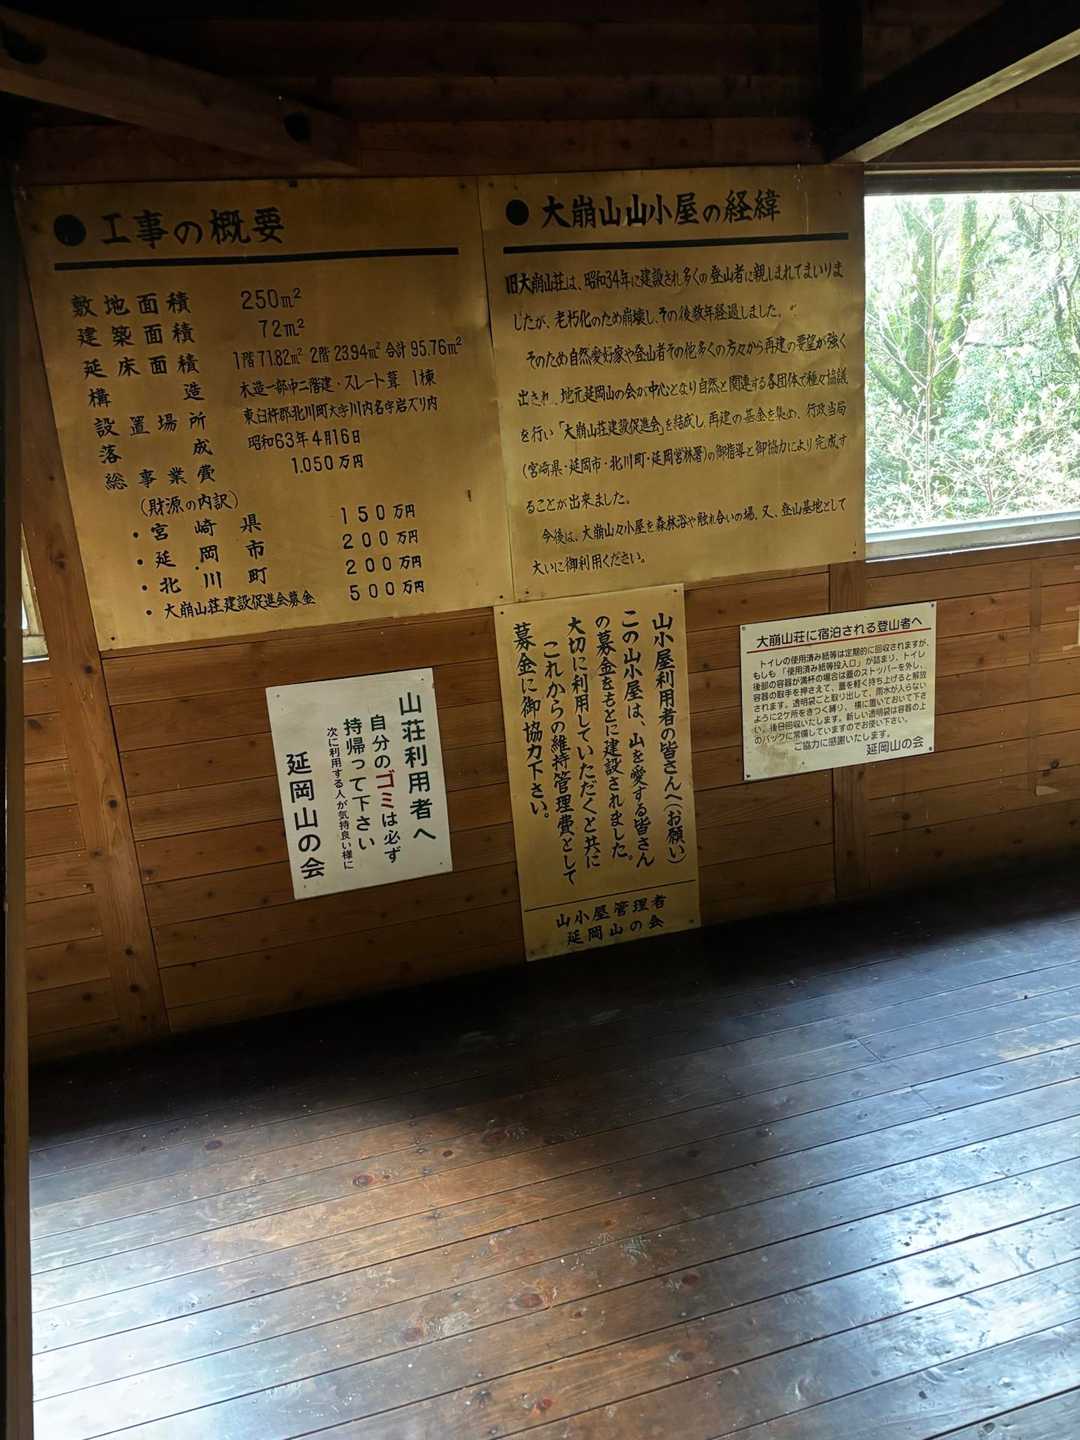 ● 工事の概要
敷地面積 250m²
建築面積 72m²
延床面積 1階71.82m² 2階23.94m² 合計95.76m²
構造 木造一部中二階建・スレート葺 1棟
設置場所 東臼杵郡北川町大字川内名字岩ズリ内
落成 昭和63年4月16日
総事業費 1,050万円
(財源の内訳)
・宮崎県 150万円
・延岡市 200万円
・北川町 200万円
・大崩山荘建設促進会募金 500万円
● 大崩山山小屋の経緯
旧大崩山荘は、昭和34年に建設され多くの登山者に親しまれてまいりま
したが、老朽化のため崩壊し、その後数年経過しました。
そのため自然愛好家や登山者その他多くの方々から再建の要望が強く
出され、地元延岡山の会が中心となり自然と関連する各団体で種々協議
を行い「大崩山荘建設促進会」を結成し再建の基金を集め、行政当局
(宮崎県・延岡市・北川町・延岡営林署)の御指導と御協力により完成す
ることが出来ました。
今後は、大崩山々小屋を森林浴や触れ合いの場、又、登山基地として
大いに御利用ください。
山荘利用者へ
自分のゴミは必ず
持帰って下さい
次に利用する人が気持良い様に
延岡山の会
山小屋利用者の皆さんへ(お願い)
この山小屋は、山を愛する皆さん
の募金をもとに建設されました。
大切に利用していただくと共に
これからの維持管理費として
募金に御協力下さい。
山小屋管理者
延岡山の会
大崩山荘に宿泊される登山者へ
トイレの使用済み紙等は定期的に回収されますが、
もしも「使用済み紙等投入口」が詰まり、トイレ
後部の容器が満杯の場合は蓋のストッパーを外し、
容器の取手を押さえて、蓋を軽く持ち上げると解放
されます。透明袋ごと取り出して、雨水が入らない
ように2ケ所をきつく縛り、横に置いておいて下さ
い。後日回収いたします。新しい透明袋は容器の上
のパックに常備していますのでお使い下さい。
ご協力に感謝いたします。
延岡山の会